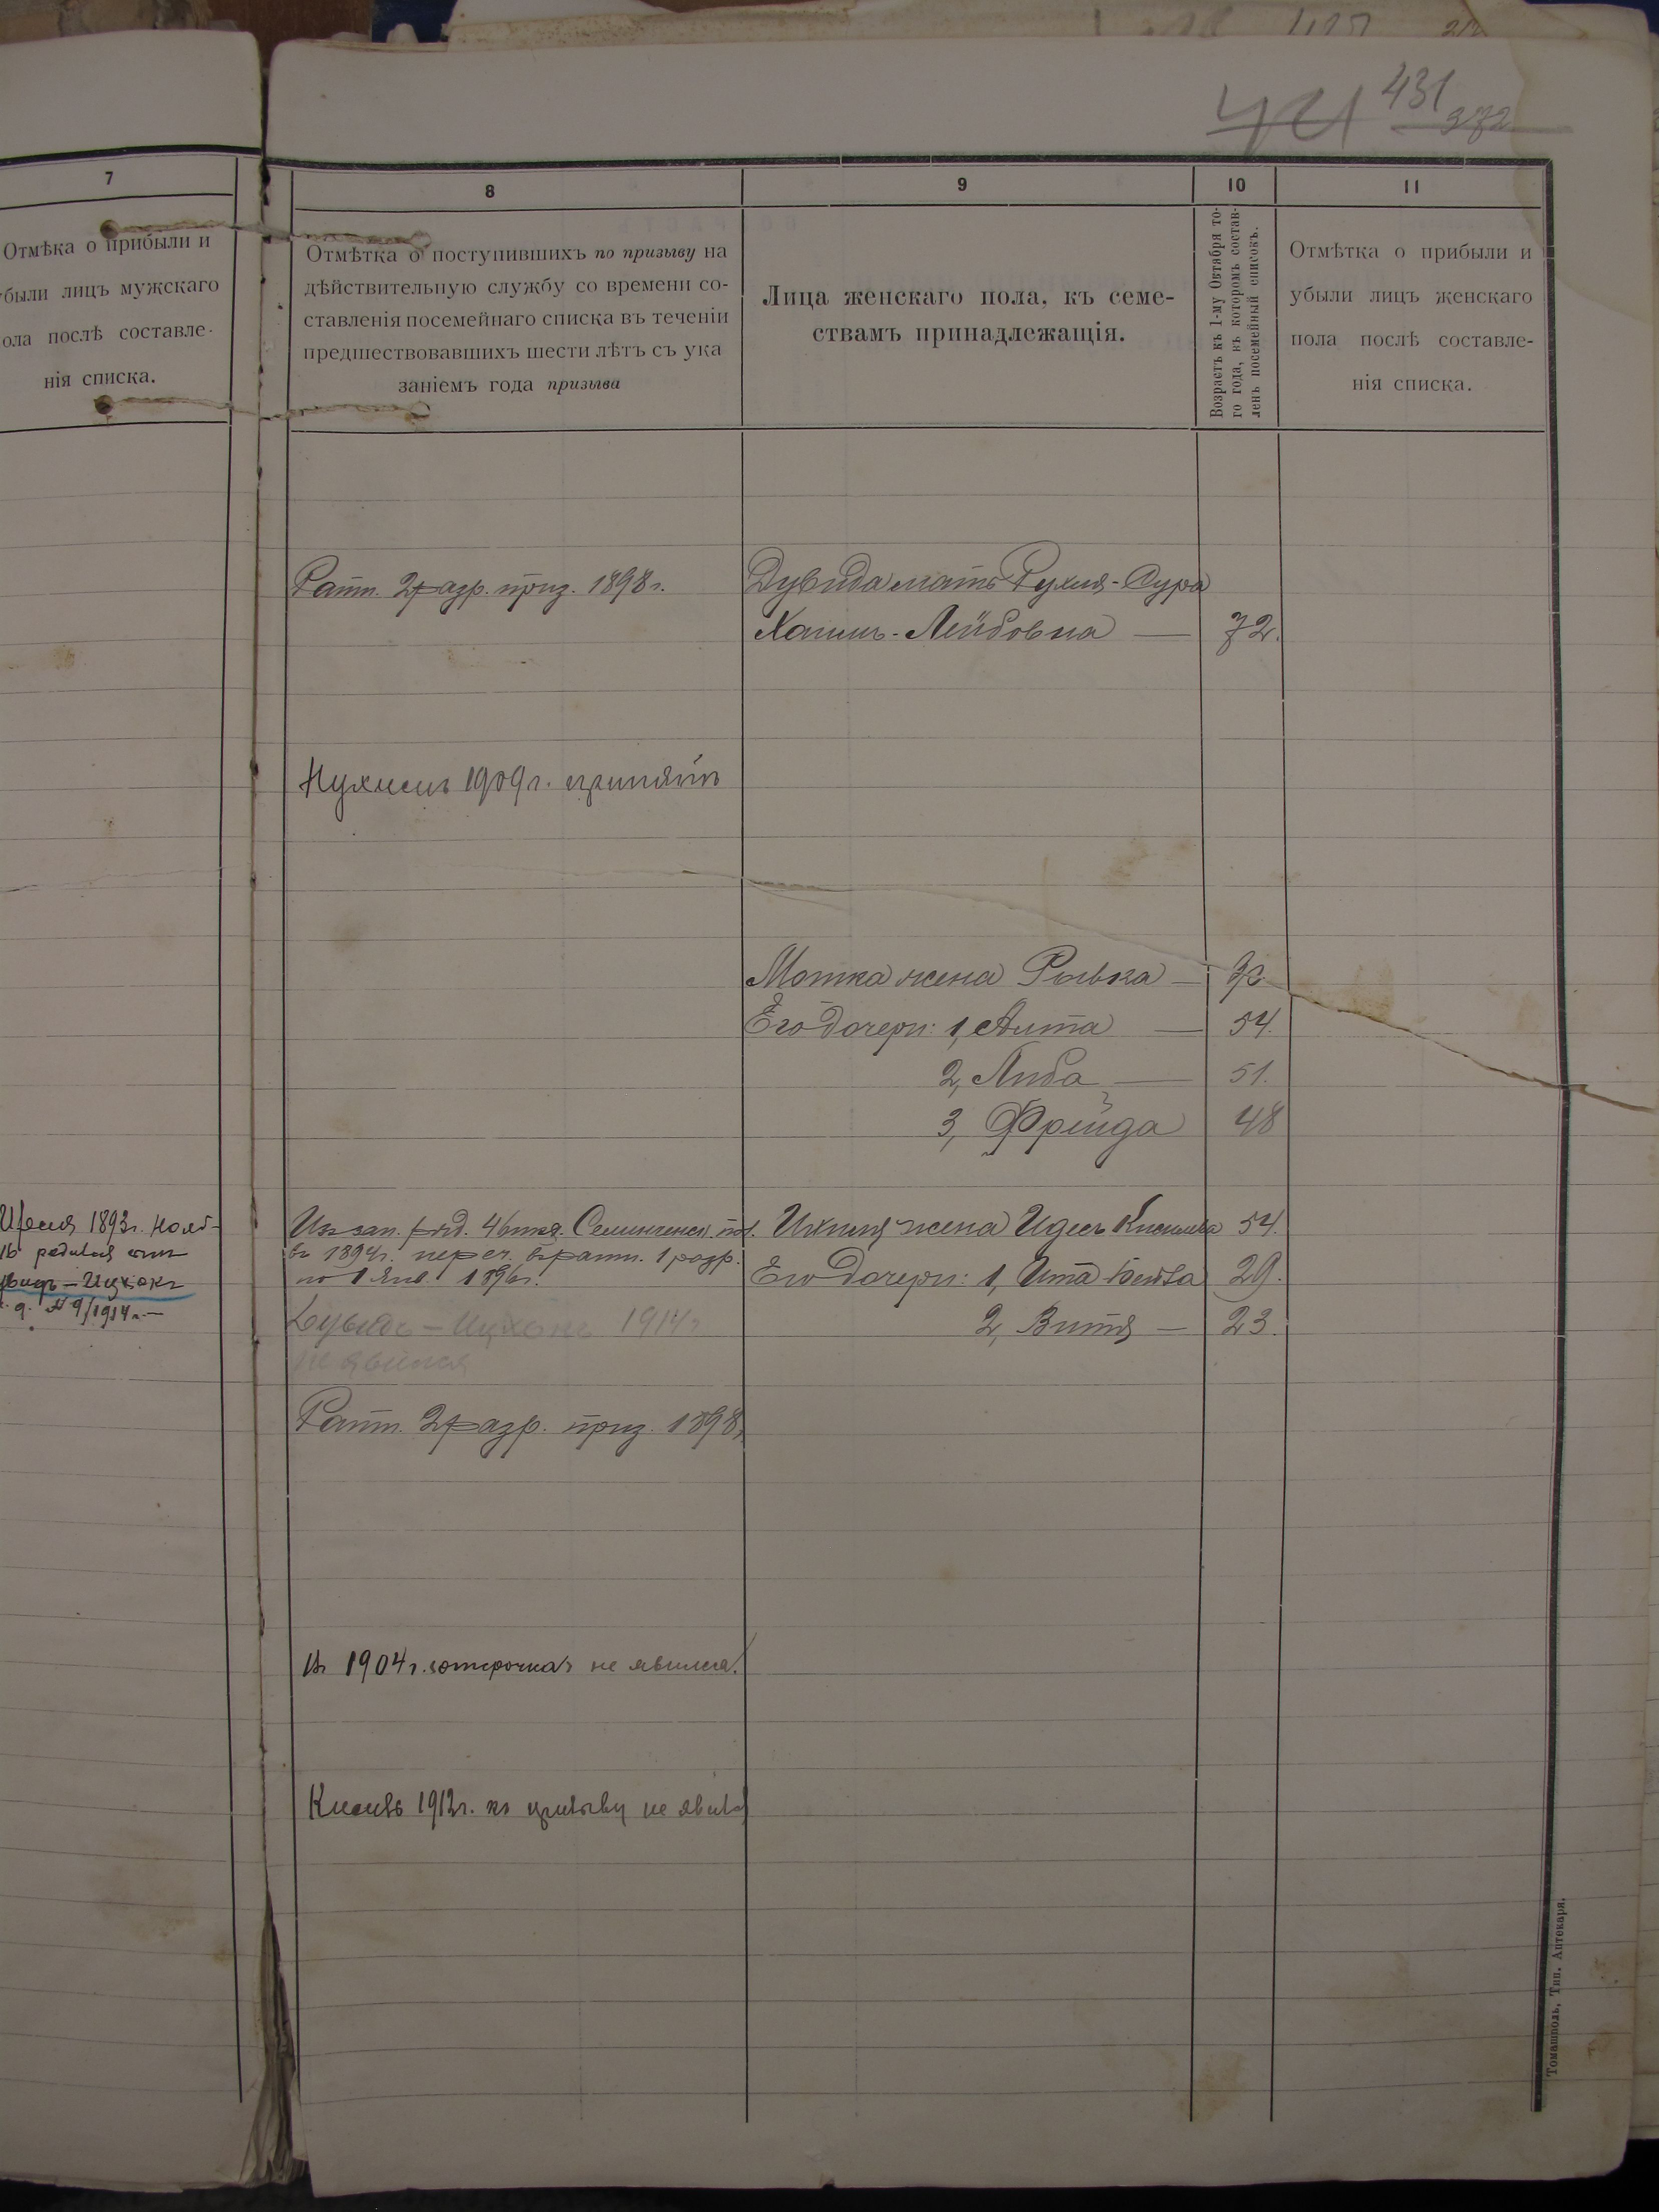 431
372
7
Отмѣка о прибыли и
были лицъ мужскаго
ола послѣ составле-
нія списка.
8
Отмѣтка о поступившихъ по призыву на
дѣйствительную службу со времени со-
ставленія посемейнаго списка въ теченіи
предшествовавшихъ шести лѣтъ съ ука
заніемъ года призыва
9
Лица женскаго пола, къ семе-
ствамъ принадлежащія.
10
Возрастъ къ 1-му Октября то-
го года, въ которомъ состав-
ленъ посемейный списокъ.
11
Отмѣтка о прибыли и
убыли лицъ женскаго
пола послѣ составле-
нія списка.
Ратн. 2 разр. приз. 1898 г.
Дувида мать Рухля-Сура
Хаимъ-Лейбовна — 72.
Нухимъ 1909 г. принятъ
Мотка жена Рывка —
Его дочери: 1, Алта — 54.
2, Либа — 51.
3, Фрейда 48
1893 г. Нояб-
16 родился сынъ
Ицхокъ
№ 9/1914 г. —
Из зап. ряд. 46
въ 1894 г. переч. въ ратн. 1 разр.
по 1 Янв. 1896 г.
Дувидъ-Ицхокъ 1914 г
не явился
Ихиля жена Идесъ 54.
Его дочери: 1, Ита Бейла 29.
2, Витя — 23.
Ратн. 2 разр. приз. 1898
Въ 1904 г. отсрочка не явился.
Кисиль 1912 г. къ призыву не явил
Томашполь, Тип. Аптекаря.